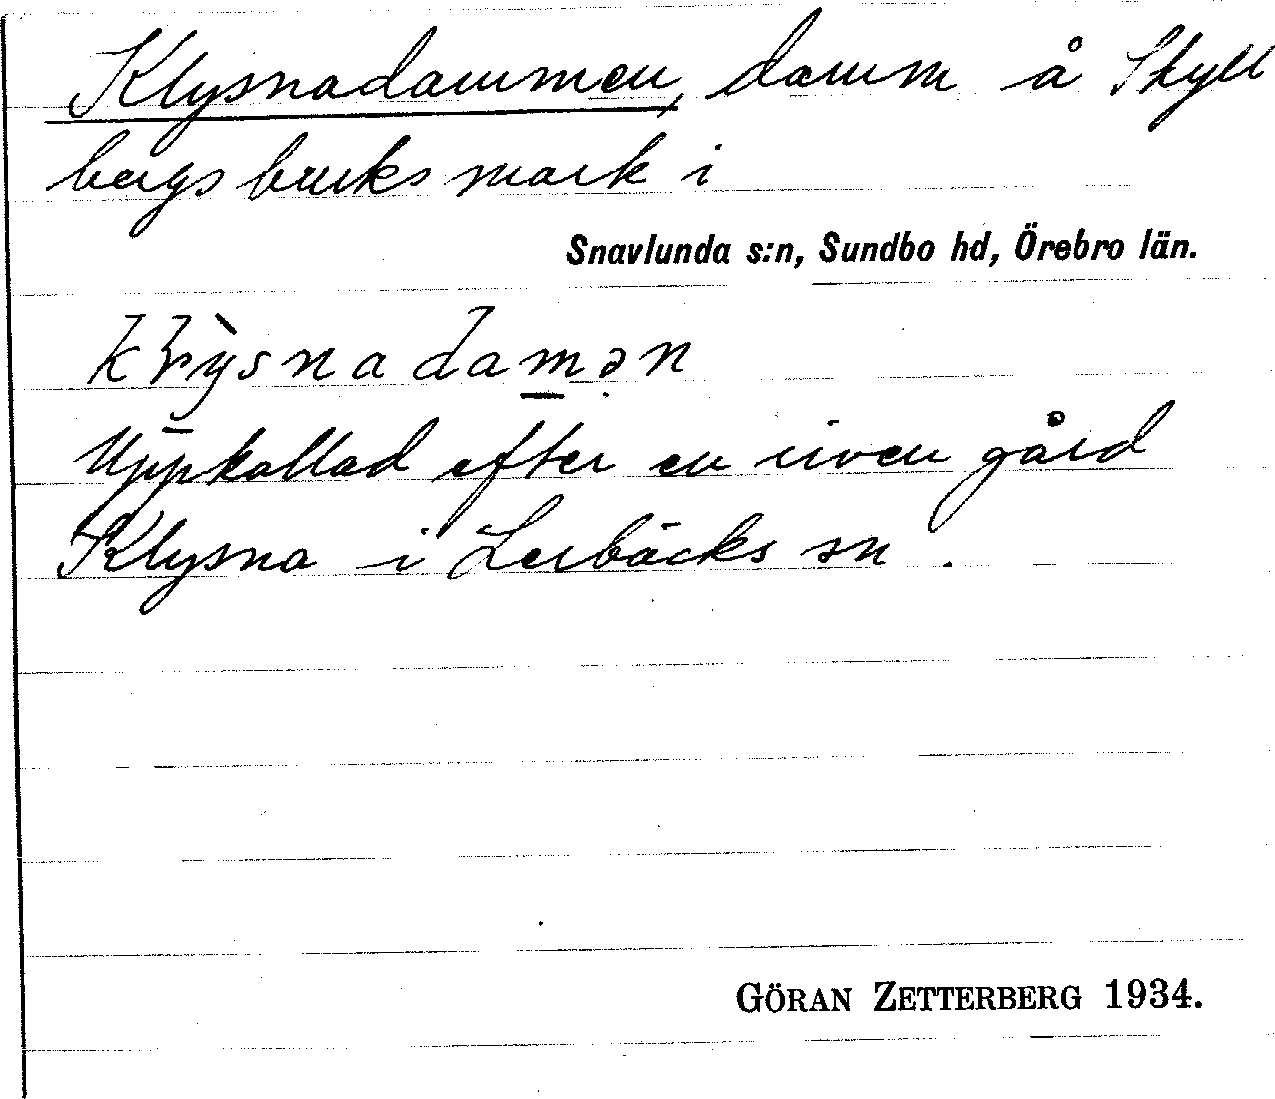 Klysnadammen, damm å Skyll
bergs bruks mark i
Snavlunda s:n, Sundbo hd, Örebro län.
Uppkallad efter en riven gård
Klysna i Lerbäcks sn.
GÖRAN ZETTERBERG 1934.